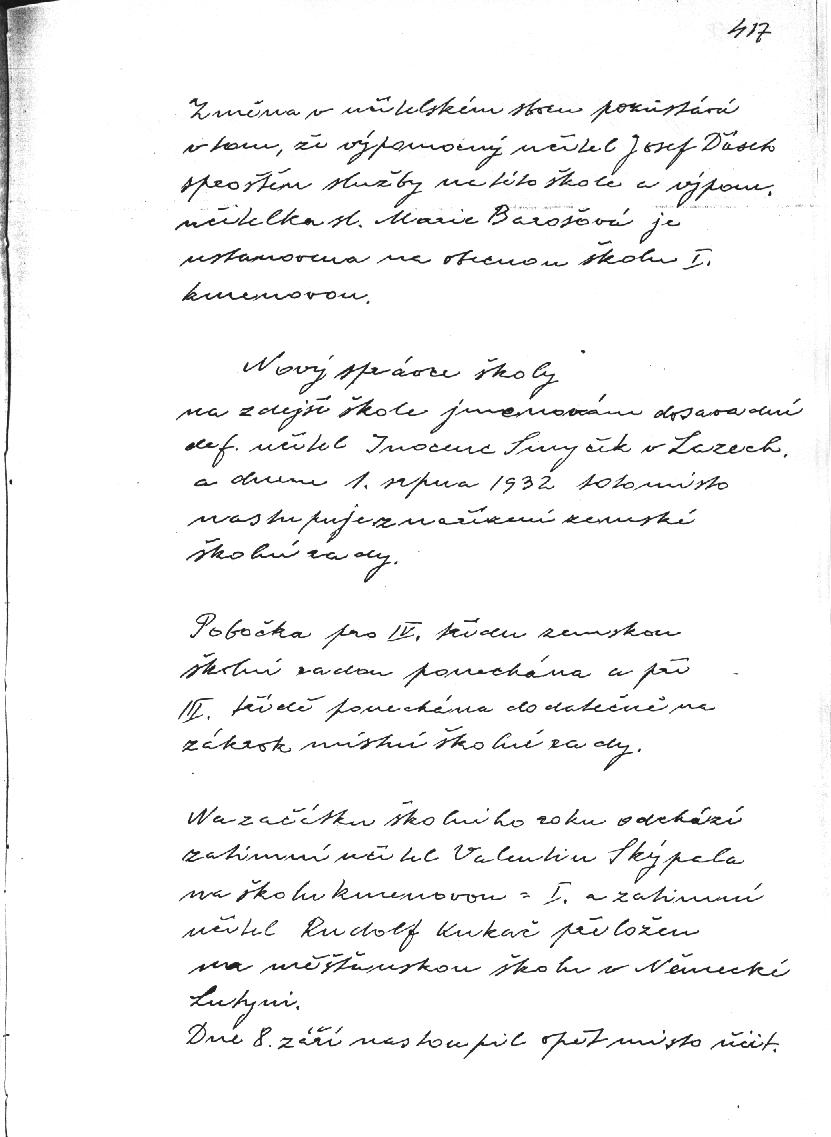 417
Změna v učitelském sboru pozůstává
v tom, že výpomocný učitel Josef Ďásek
sproštěn služby na této škole a výpom.
učitelka sl. Marie Barošová je
ustanovena na obecnou školu I.
kmenovou.
Nový správce školy
na zdejší škole jmenován dosavadní
def. učitel Inocenc Smyčík v Lazech.
a dnem 1. srpna 1932 totomisto
nastupuje z nařízení zemské
školní rady.
Pobočka pro IV. třídu zemskou
školní radou ponechána a při
III. třídě ponechána dodatečně na
zákrok místní školní rady.
Na začátku školního roku odchází
zatimní učitel Valentin Skýpala
na školu kmenovou = I. a zatimní
učitel Rudolf Kukač přeložen
na měšťanskou školu v Německé
Lutyni.
Dne 8. září nastoupil opět místo učit.